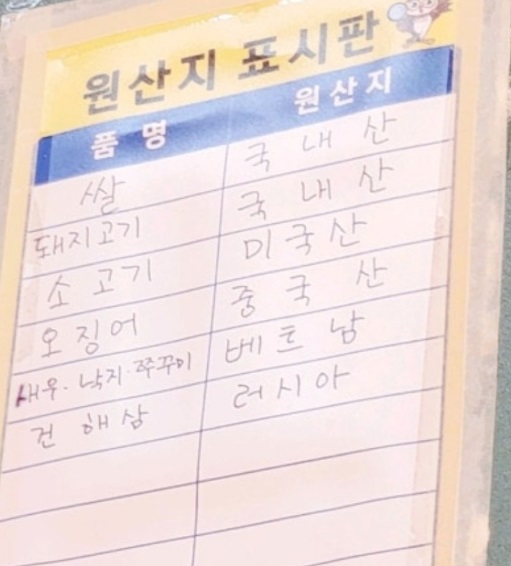 원산지 표시판
품명 원산지
쌀 국내산
돼지고기 국내산
소고기 미국산
오징어 중국산
새우·낙지·쭈꾸미 베트남
건해삼 러시아